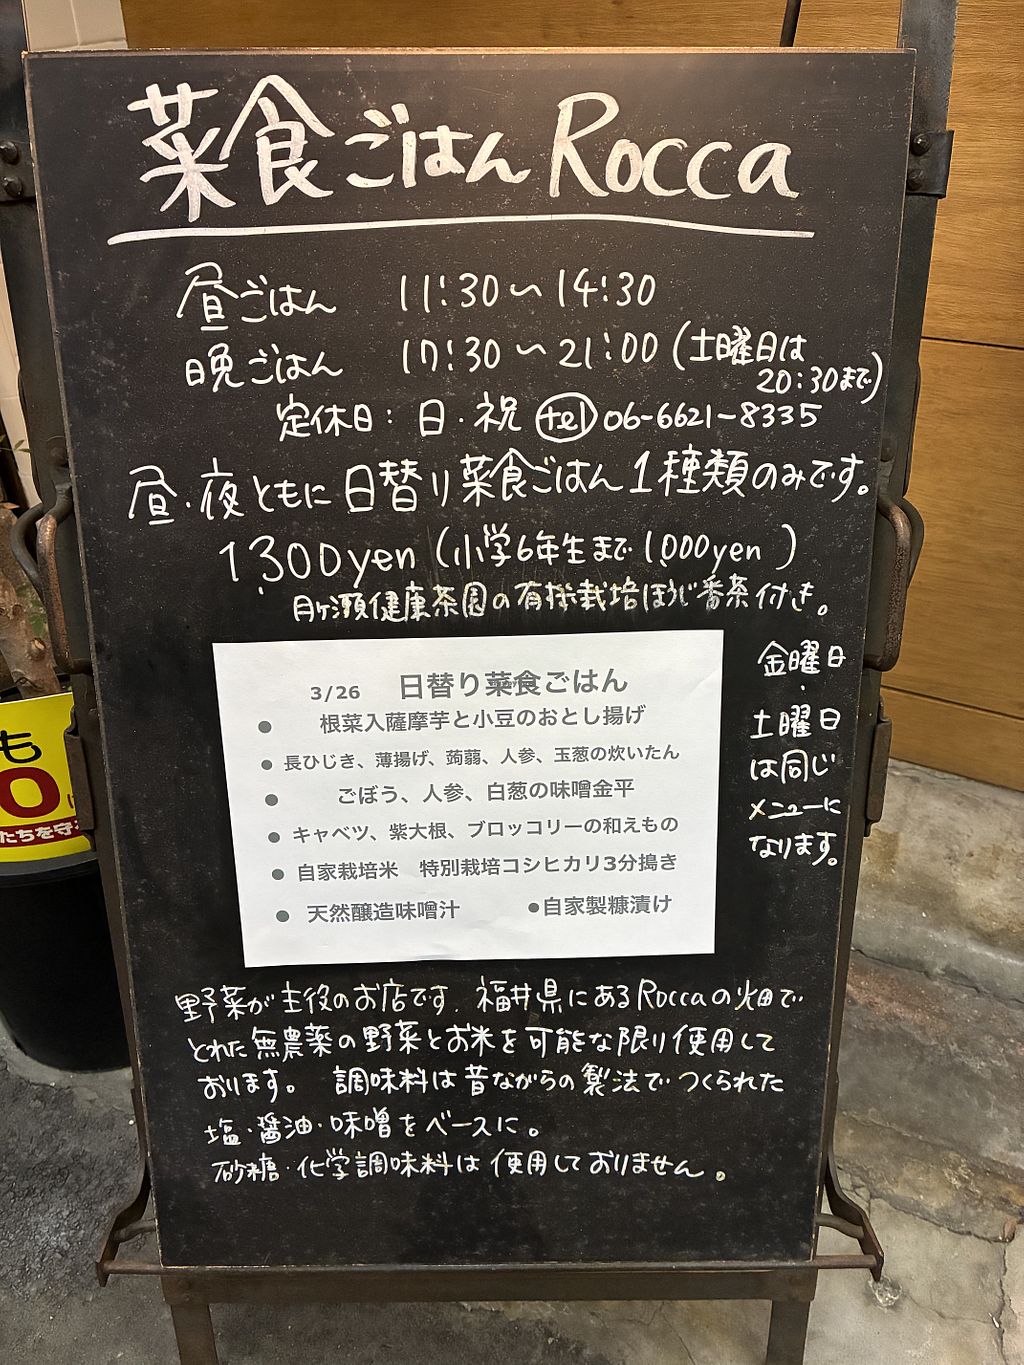 菜食ごはん Rocca
昼ごはん 11:30〜14:30
晩ごはん 17:30〜21:00 (土曜日は
20:30まで)
定休日: 日・祝 tel 06-6621-8335
昼・夜ともに日替り菜食ごはん1種類のみです。
1,300yen (小学6年生まで1,000yen)
月ヶ瀬健康茶園の有機栽培ほうじ番茶付き。
3/26 日替り菜食ごはん
● 根菜入薩摩芋と小豆のおとし揚げ
● 長ひじき、薄揚げ、蒟蒻、人参、玉葱の炊いたん
● ごぼう、人参、白葱の味噌金平
● キャベツ、紫大根、ブロッコリーの和えもの
● 自家栽培米 特別栽培コシヒカリ3分搗き
● 天然醸造味噌汁 ●自家製糠漬け
金曜日
・
土曜日
は同じ
メニューに
なります。
野菜が主役のお店です. 福井県にあるRoccaの畑で
とれた無農薬の野菜とお米を可能な限り使用して
おります。 調味料は昔ながらの製法でつくられた
塩・醤油・味噌をベースに。
砂糖・化学調味料は使用しておりません。
も
0
たちを守